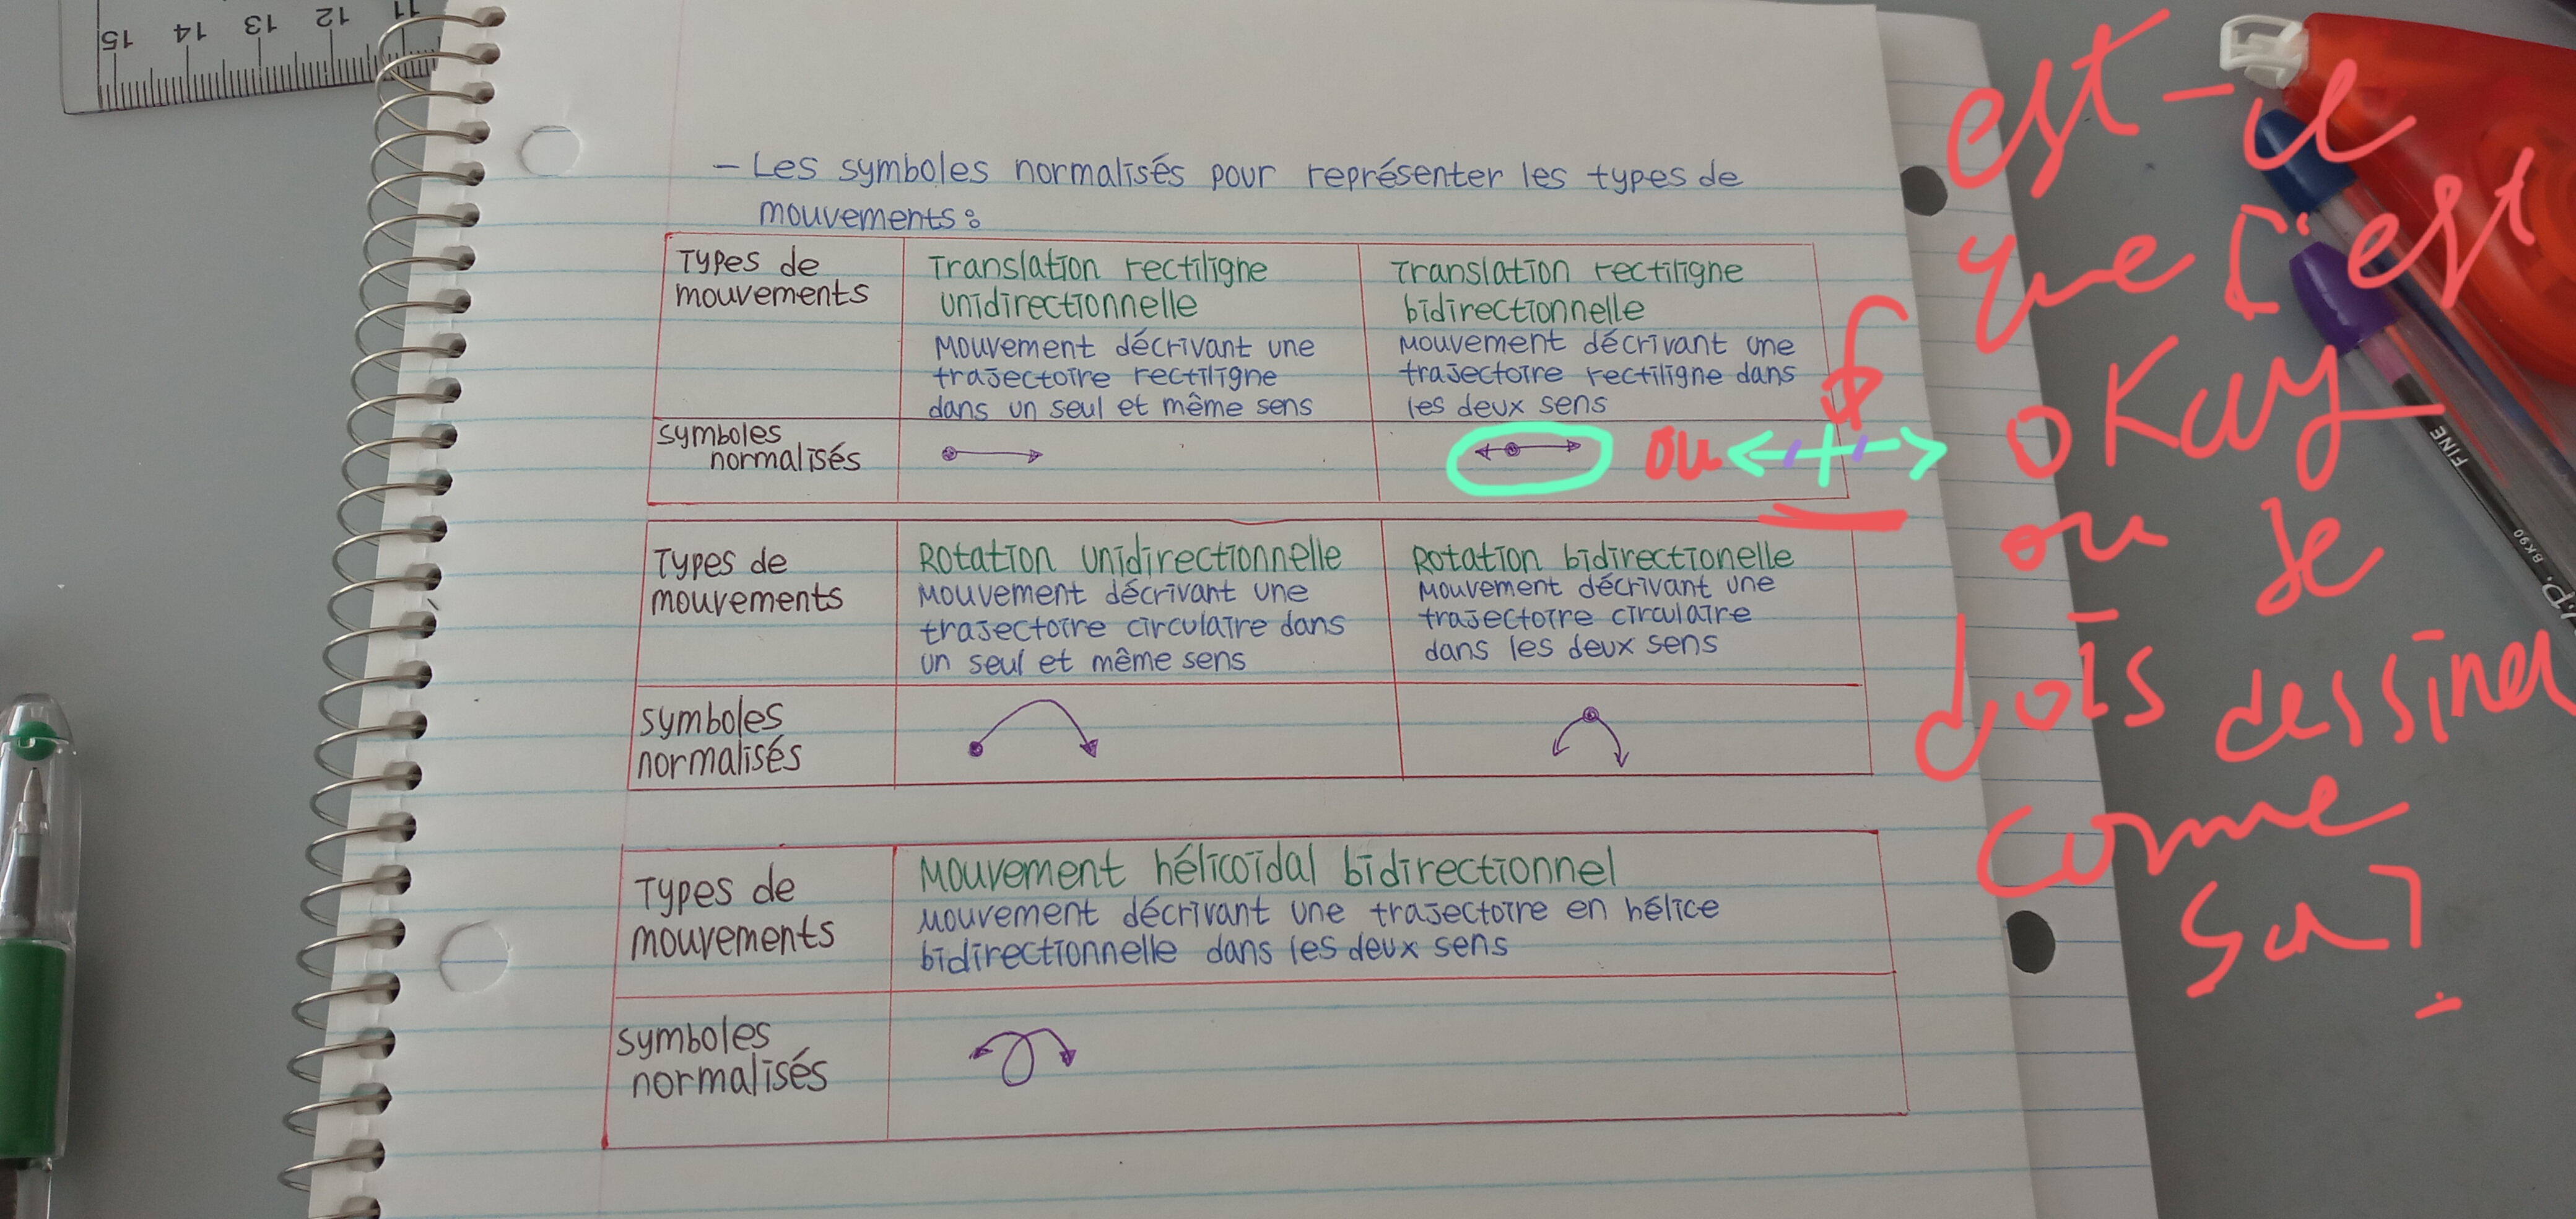 15 14 13 12 11
- Les symboles normalisés pour représenter les types de
mouvements :
Types de
mouvements
Translation rectiligne
unidirectionnelle
Mouvement décrivant une
trajectoire rectiligne
dans un seul et même sens
Translation rectiligne
bidirectionnelle
Mouvement décrivant une
trajectoire rectiligne dans
les deux sens
symboles
normalisés
ou
Types de
mouvements
Rotation unidirectionnelle
Mouvement décrivant une
trajectoire circulaire dans
un seul et même sens
Rotation bidirectionelle
Mouvement décrivant une
trajectoire circulaire
dans les deux sens
symboles
normalisés
Types de
mouvements
Mouvement hélicoïdal bidirectionnel
Mouvement décrivant une trajectoire en hélice
bidirectionnelle dans les deux sens
symboles
normalisés
est-ce
que c'est
okay
ou je
dois dessiner
comme
sa?
FINE
BK90